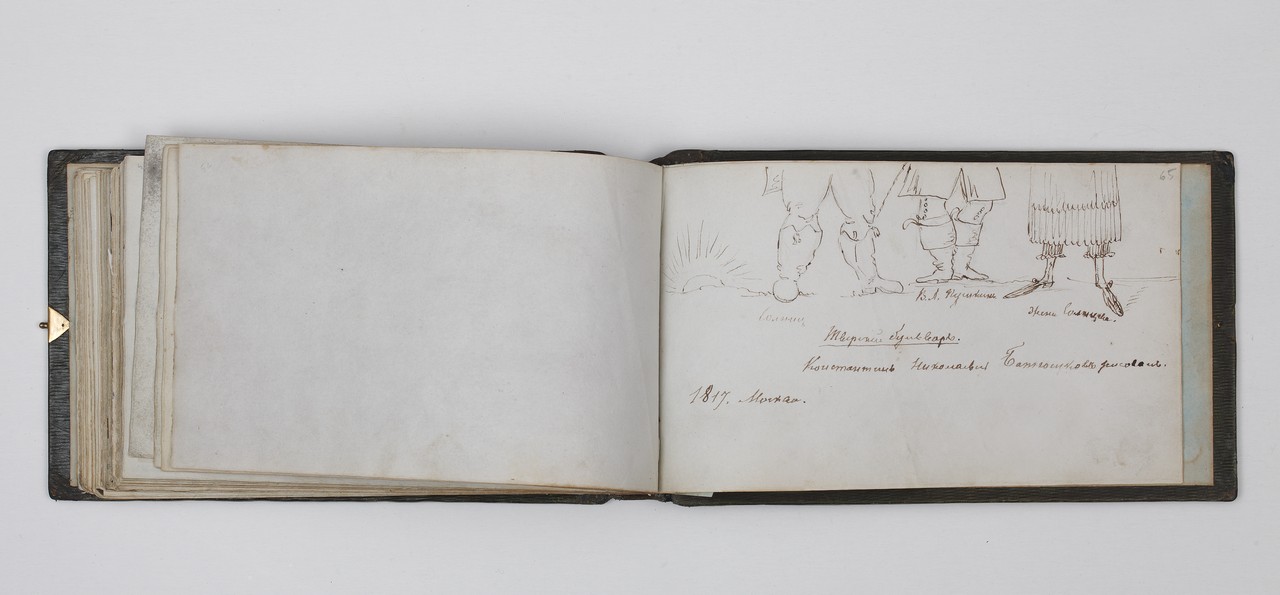 65
В. Л. Пушкинъ
жена Солнцева.
Тверской бульваръ.
Константинъ Николаевич Батюшковъ рисовалъ.
1817. Москва.